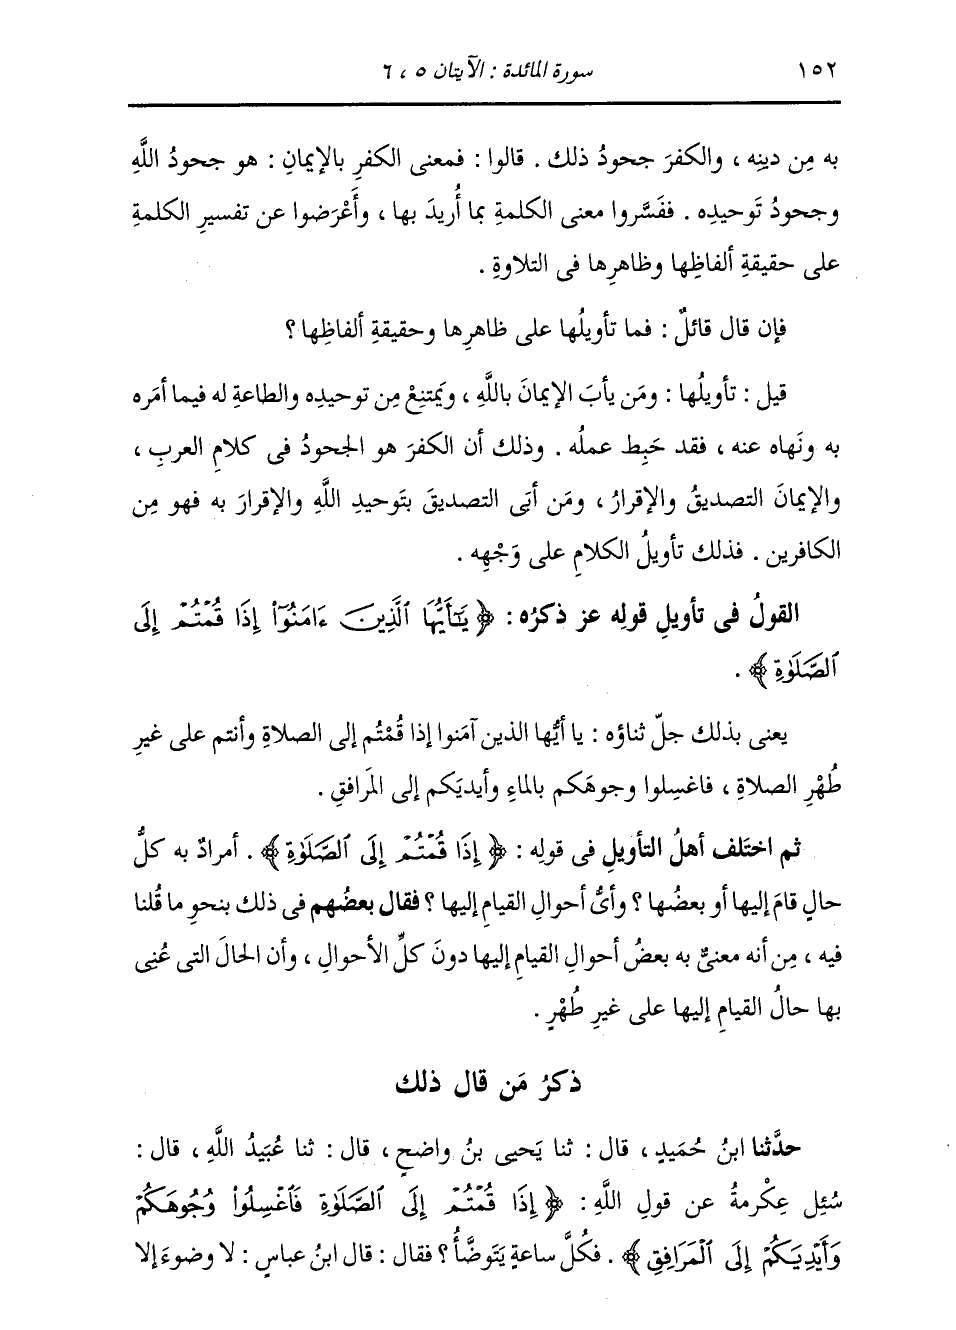 ١٥٢ سورة المائدة : الآيتان ٥ ، ٦
به مِن دينِه ، والكفرَ جحودُ ذلك . قالوا : فمعنى الكفرِ بالإيمانِ : هو جحودُ اللَّهِ
وجحودُ تَوحيدِه . ففَسَّروا معنى الكلمةِ بما أُريدَ بها ، وأَعْرَضوا عن تفسيرِ الكلمةِ
على حقيقةِ ألفاظِها وظاهرِها فى التلاوةِ .
فإن قال قائلٌ : فما تأويلُها على ظاهرِها وحقيقةِ ألفاظِها ؟
قيل : تأويلُها : ومَن يأبَ الإيمانَ باللَّهِ ، ويَمتنِعْ مِن توحيدِه والطاعةِ له فيما أمَره
به ونَهاه عنه ، فقد حَبِط عملُه . وذلك أن الكفرَ هو الجحودُ فى كلامِ العربِ ،
والإيمانَ التصديقُ والإقرارُ ، ومَن أبَى التصديقَ بتَوحيدِ اللَّهِ والإقرارَ به فهو مِن
الكافرين . فذلك تأويلُ الكلامِ على وَجْهِه .
القولُ فى تأويلِ قولِه عز ذكرُه : ﴿ يَٰٓأَيُّهَا ٱلَّذِينَ ءَامَنُوٓا۟ إِذَا قُمْتُمْ إِلَى
ٱلصَّلَوٰةِ ﴾ .
يعنى بذلك جلّ ثناؤه : يا أيُّها الذين آمَنوا إذا قُمْتُم إلى الصلاةِ وأنتم على غيرِ
طُهْرِ الصلاةِ ، فاغسِلوا وجوهَكم بالماءِ وأيديَكم إلى المَرافقِ .
ثم اختَلف أهلُ التأويلِ فى قولِه : ﴿ إِذَا قُمْتُمْ إِلَى ٱلصَّلَوٰةِ ﴾ . أمرادٌ به كلُّ
حالٍ قامَ إليها أو بعضُها ؟ وأىُّ أحوالِ القيامِ إليها ؟ فقال بعضُهم فى ذلك بنحوِ ما قُلنا
فيه ، مِن أنه معنىٌّ به بعضُ أحوالِ القيامِ إليها دونَ كلِّ الأحوالِ ، وأن الحالَ التى عُنِى
بها حالُ القيامِ إليها على غيرِ طُهْرٍ .
ذكرُ مَن قال ذلك
حدَّثنا ابنُ حُمَيدٍ ، قال : ثنا يَحيى بنُ واضحٍ ، قال : ثنا عُبَيدُ اللَّهِ ، قال :
سُئِل عِكْرمةُ عن قولِ اللَّهِ : ﴿ إِذَا قُمْتُمْ إِلَى ٱلصَّلَوٰةِ فَٱغْسِلُوا۟ وُجُوهَكُمْ
وَأَيْدِيَكُمْ إِلَى ٱلْمَرَافِقِ ﴾ . فكُلَّ ساعةٍ يَتوضَّأُ ؟ فقال : قال ابنُ عباسٍ : لا وضوءَ إلا